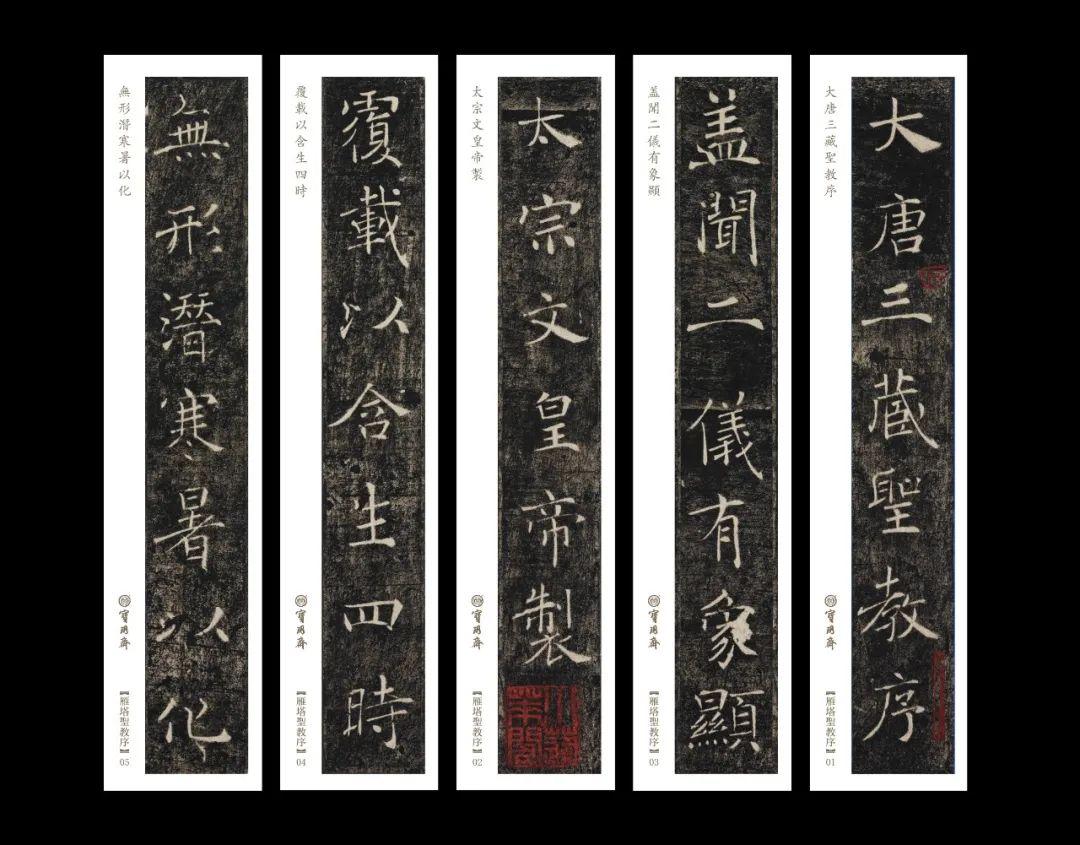 大唐三藏聖教序
大唐三藏聖教序
【雁塔聖教序】 01
盖聞二儀有象顯
盖聞二儀有象顯
【雁塔聖教序】 03
太宗文皇帝製
小蓬萊閣
太宗文皇帝製
【雁塔聖教序】 02
覆載以含生四時
覆載以含生四時
【雁塔聖教序】 04
無形潛寒暑以化
無形潛寒暑以化
【雁塔聖教序】 05